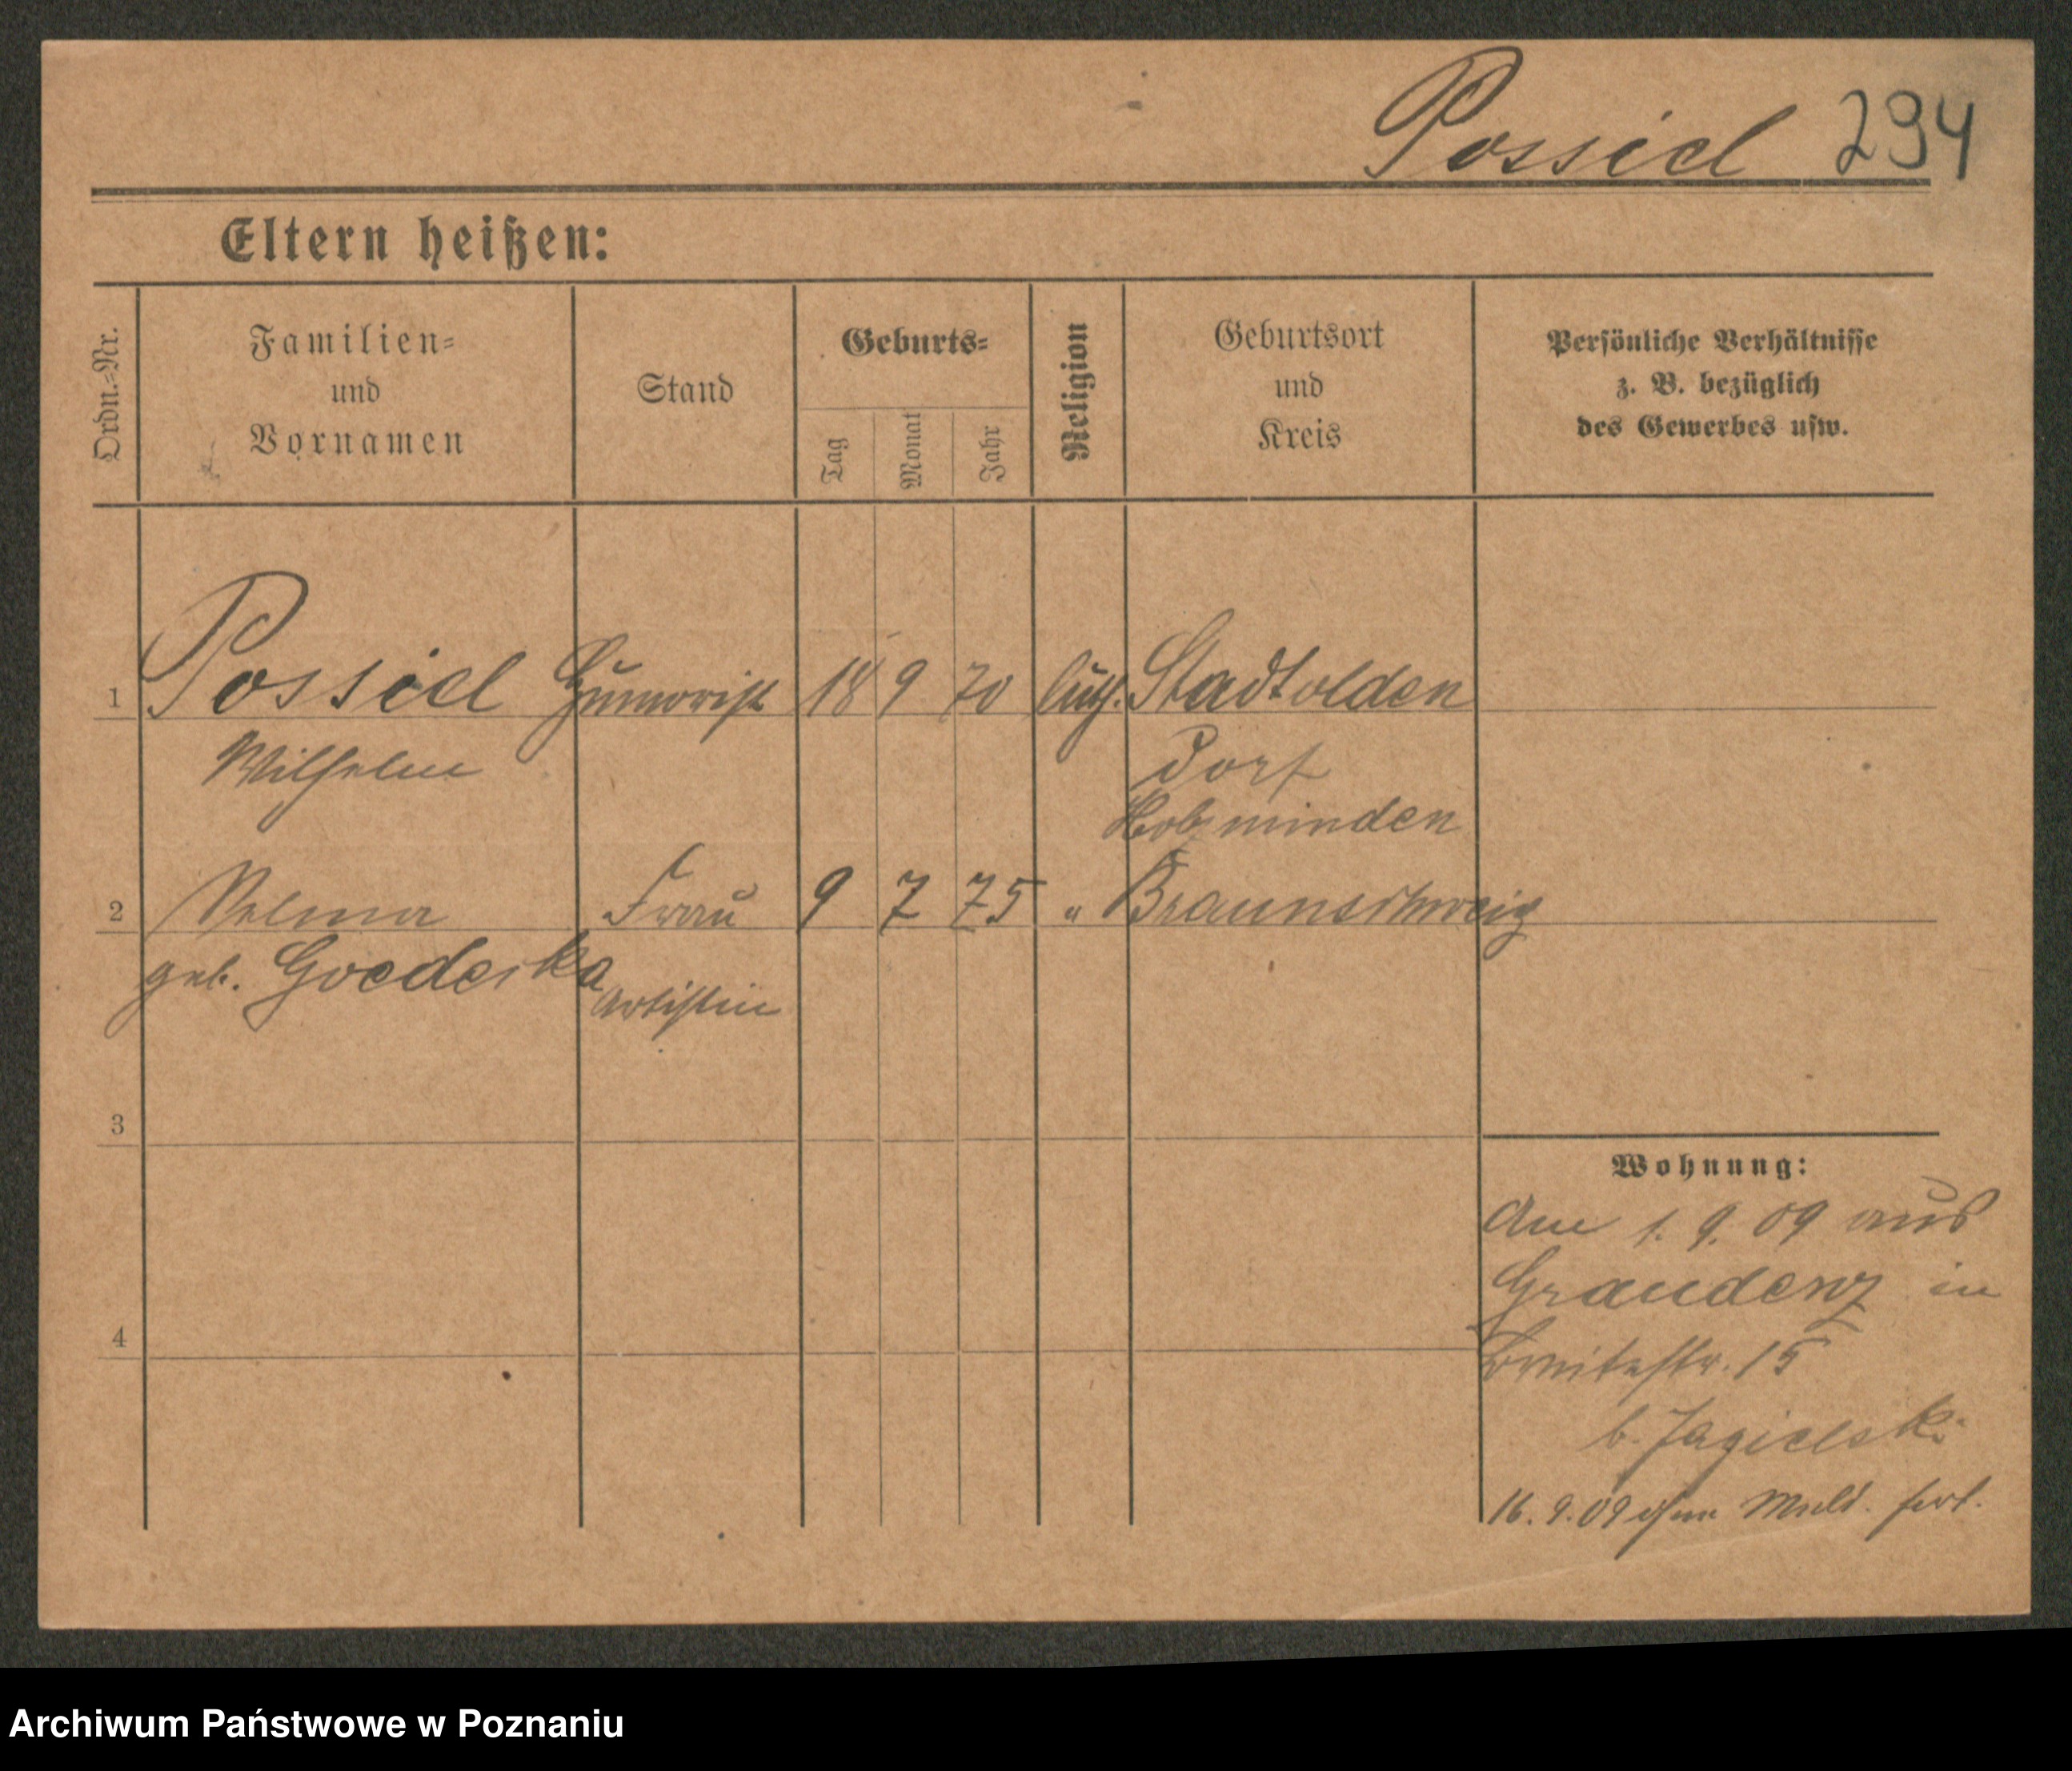 Possiel 294
Eltern heißen:
Ordn.-Nr.
Familien-
und
Vornamen
Stand
Geburts-
Tag
Monat
Jahr
Religion
Geburtsort
und
Kreis
Persönliche Verhältnisse
z. B. bezüglich
des Gewerbes usw.
1 Possiel Humorist 18 9 70 luth. Stadtolden
Wilhelm dorf
Holzminden
2 Selma Frau 9 7 75 " Braunschweig
geb. Goedecka Artistin
3
Wohnung:
Am 1. 9. 09 aus
Graudenz in
4
Breitestr. 15
b. Jagielski
16. 9. 09 ohne Meld. fort.
Archiwum Państwowe w Poznaniu